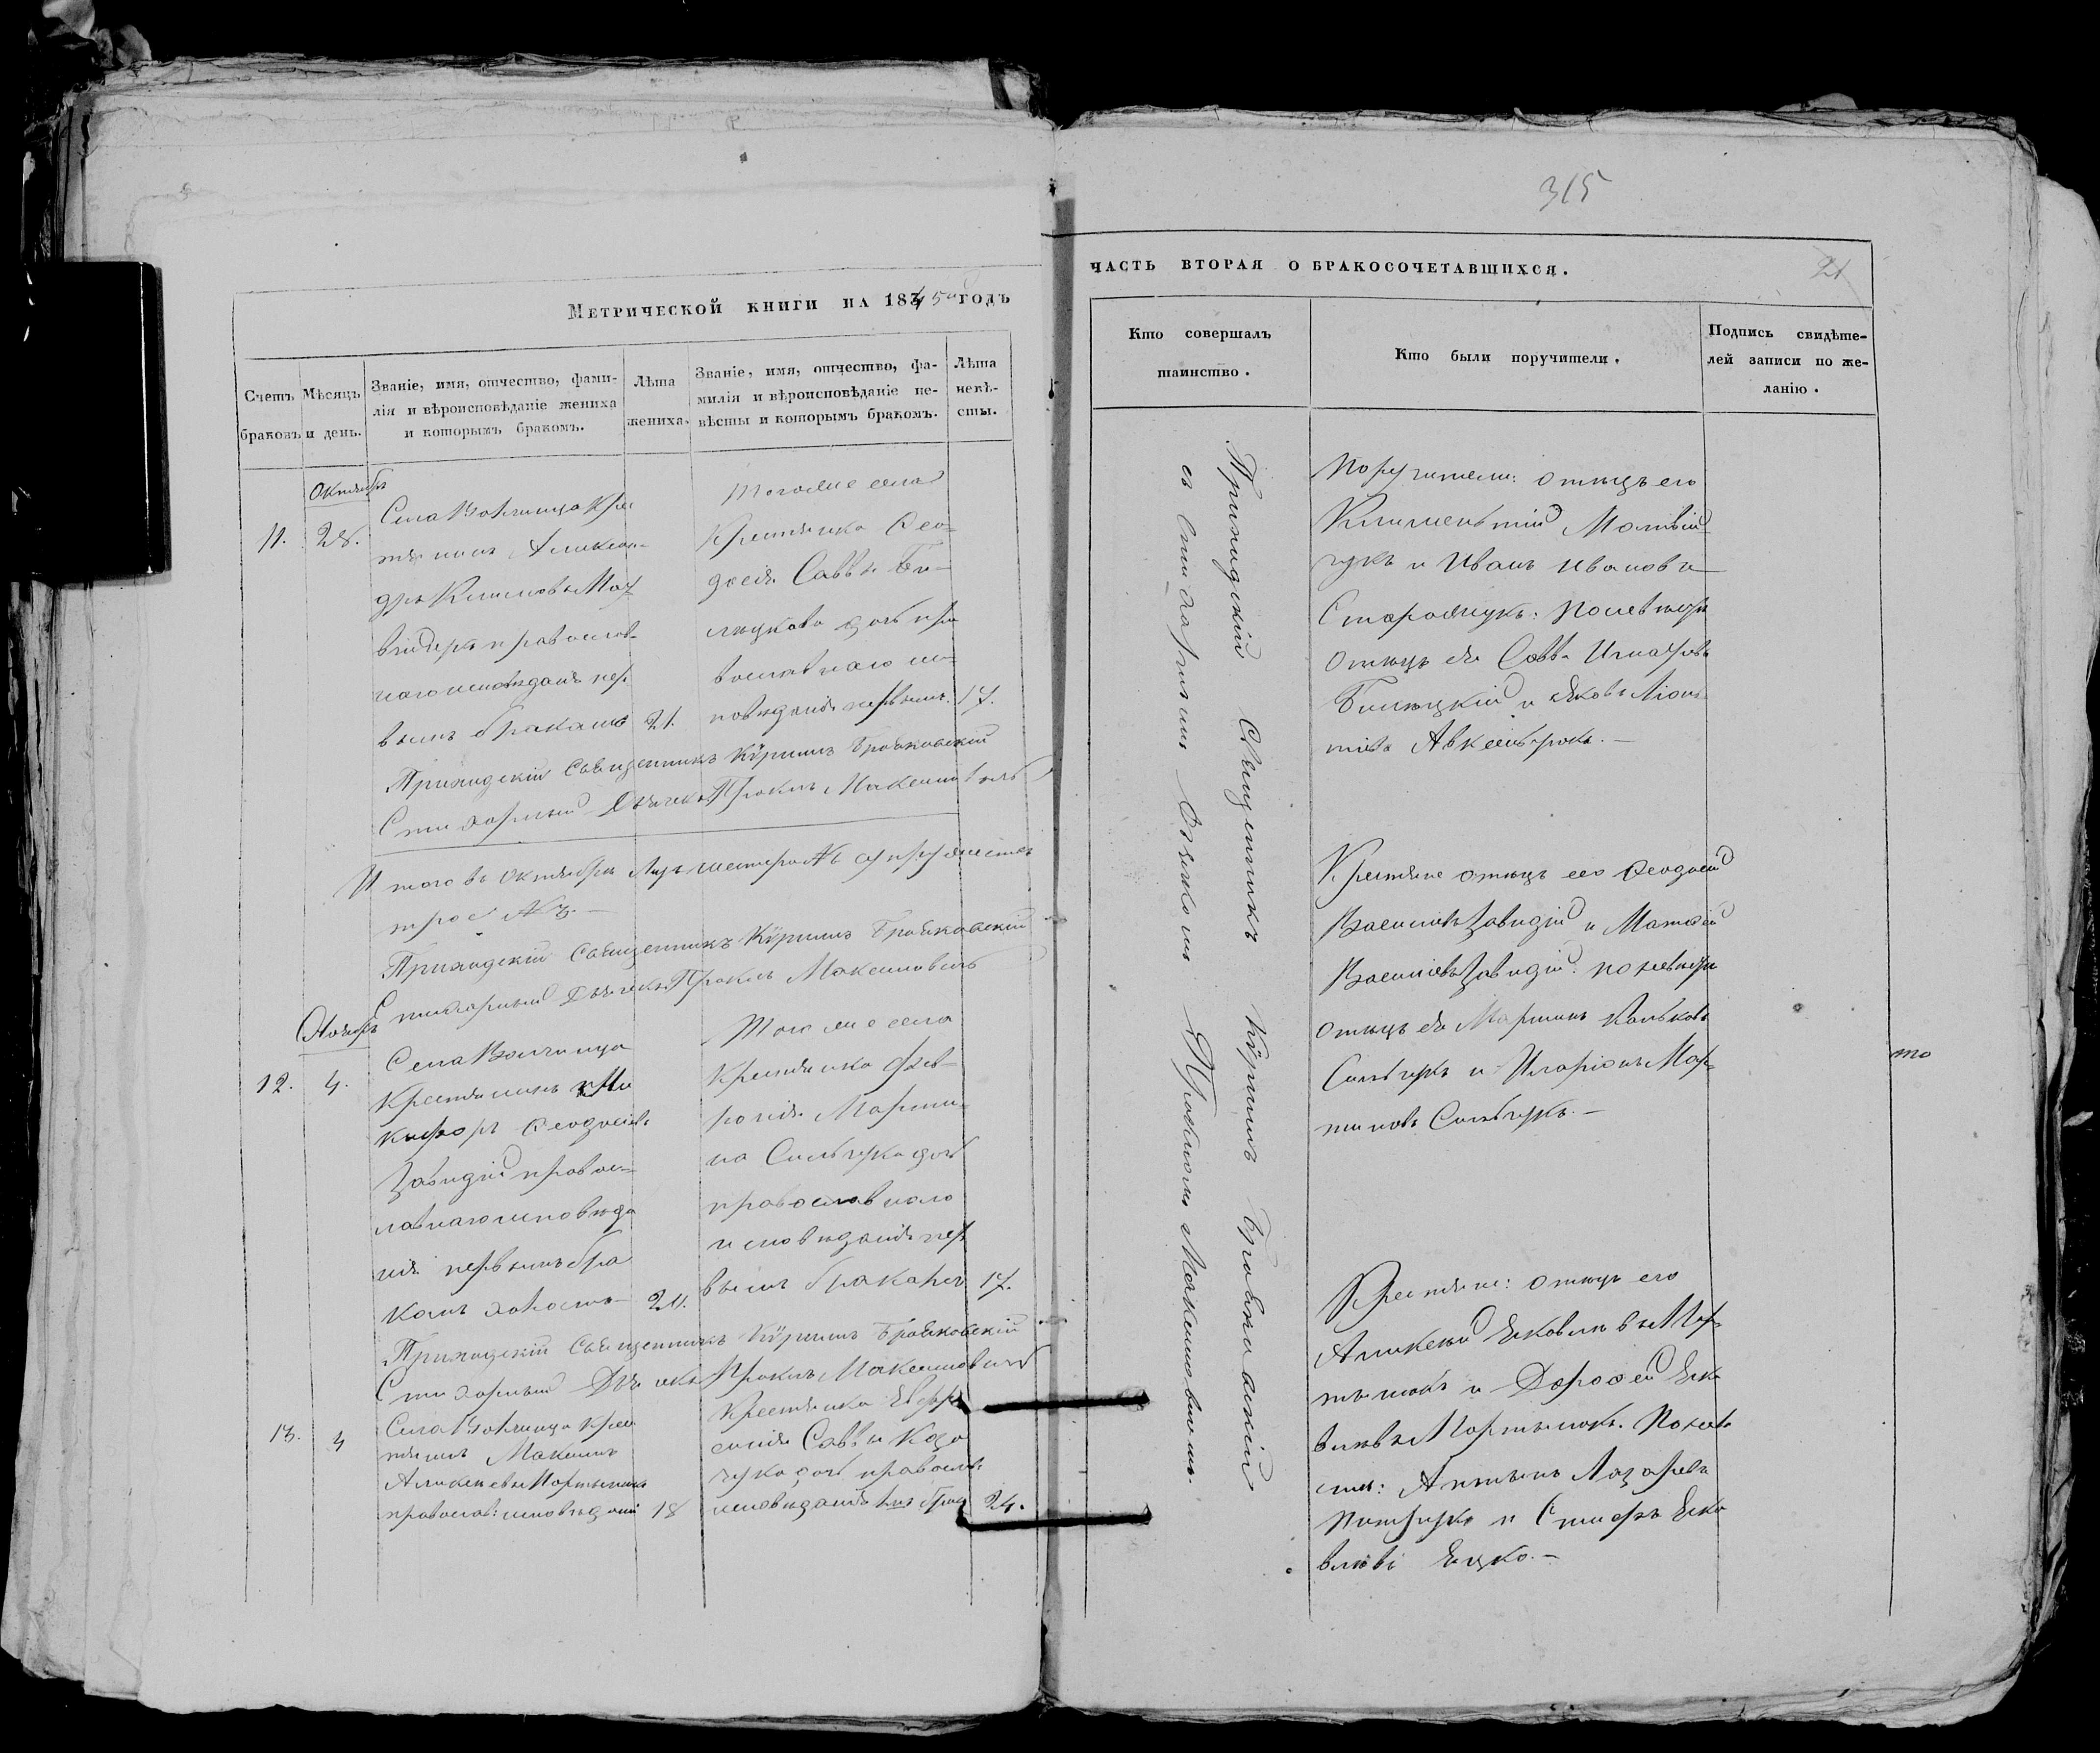 МЕТРИЧЕСКОЙ КНИГИ НА 1845й ГОДЪ
Счетъ браковъ
Мѣсяцъ и день.
Званіе, имя, отчество, фами-
лія и вѣроисповѣданіе жениха
и которымъ бракомъ.
Лѣта
жениха.
Званіе, имя, отчество, фа-
милія и вѣроисповѣданіе не-
вѣсты и которымъ бракомъ.
Лѣта
невѣ-
сты.
Октябрь
11.
28.
Села Волчища Крес
тянинъ Алексан-
дръ Климовъ
православ-
наго исповѣданія пер
вымъ бракомъ
21.
Тогоже села
Крестянка Ѳео-
досія Саввы Би-
лецкаго дочь пра
вославнаго ис-
повѣданія первымъ.
17.
Приходскій Священникъ Кѵрилъ Брояковскій
Стихарный Дьячекъ Проклъ Максимовичъ
Итого въ Октябрѣ супружествъ
трое №3.—
Приходскій Священникъ Кѵрилъ Брояковскій
Стихарный Дьячекъ Проклъ Максимовичъ
Ноябрь
12.
4.
Села Волчища
Крестянинъ Ни
кифоръ Ѳеодосіевъ
Завидій правос-
лавнаго исповѣда
нія первымъ бра
комъ
Того же села
Крестянка Фев-
ронія Марти-
на Сильчука дочь
православнаго
исповѣданія пер
вымъ бракомъ
17.
Приходскій Священникъ Кѵрилъ Брояковскій
Стихарный Дьячекъ Проклъ Максимовичъ
13.
4
Села Волчища Крес
тянинъ Максимъ
Алексѣевъ Мартынюкъ
православ: исповѣданія
18
Крестянка Евфро
синія Саввы Козо
чука дочь православ:
исповѣданія
24.
315
ЧАСТЬ ВТОРАЯ О БРАКОСОЧЕТАВШИХСЯ.
21
Кто совершалъ
таинство.
Кто были поручители.
Подпись свидѣте-
лей записи по же-
ланію.
Приходскій Священникъ Кѵрилъ Брояковскій
съ Стихарнымъ Дьячкомъ Прокломъ Максимовичемъ.
Поручители: отецъ его
Климентій Матвій
чукъ и Иванъ Ивановъ
Сторожукъ: по невѣстѣ
отецъ ея Савва Игнатовъ
Билецкій и Яковъ Леон
тіевъ
Крестяне отецъ его Ѳеодосій
Василіевъ Завидій и Матфей
Василіевъ Завидій: по невѣстѣ
отецъ ея Мартинъ
Сильчукъ и Иларіонъ Мар-
тиновъ Сильчукъ.—
то
Крестяне: отецъ его
Алексѣй Яковлевъ Мар
тынюкъ и Дорофей Яко
влевъ Мартынюкъ. По невѣ
стѣ: Антонъ Лазаревъ
и Стефанъ Яко
влевъ Яцко.—